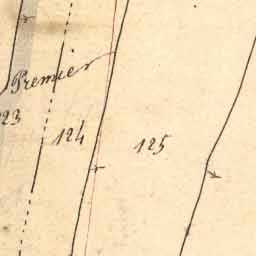 Premier
23
124
125